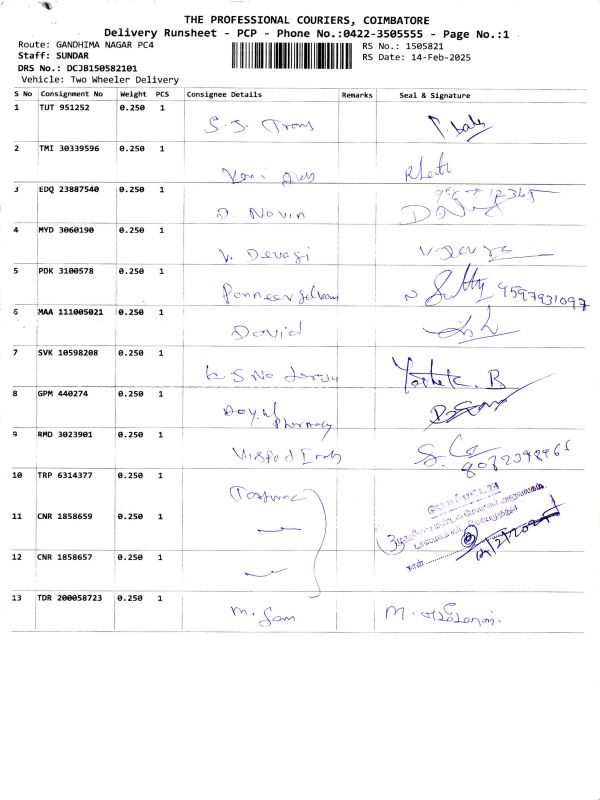 THE PROFESSIONAL COURIERS, COIMBATORE
Delivery Runsheet - PCP - Phone No.:0422-3505555 - Page No.:1
Route: GANDHIMA NAGAR PC4
RS No.: 1505821
Staff: SUNDAR
RS Date: 14-Feb-2025
DRS No.: DCJB150582101
Vehicle: Two Wheeler Delivery
S No Consignment No Weight PCS Consignee Details Remarks Seal & Signature
1 TUT 951252 0.250 1 S.S. Trans P.
2 TMI 30339596 0.250 1
3 EDQ 23887540 0.250 1 D. Navin
4 MYD 3060190 0.250 1 V. Devagi
5 PDK 3100578 0.250 1 Panneerselvam 9597931097
6 MAA 111005021 0.250 1 David
7 SVK 10598208 0.250 1 K S B
8 GPM 440274 0.250 1 Pharmacy
9 RMD 3023901 0.250 1 S.
10 TRP 6314377 0.250 1
11 CNR 1858659 0.250 1
12 CNR 1858657 0.250 1 14/2/2025
நாள்
13 TDR 200058723 0.250 1 M. Sam M.